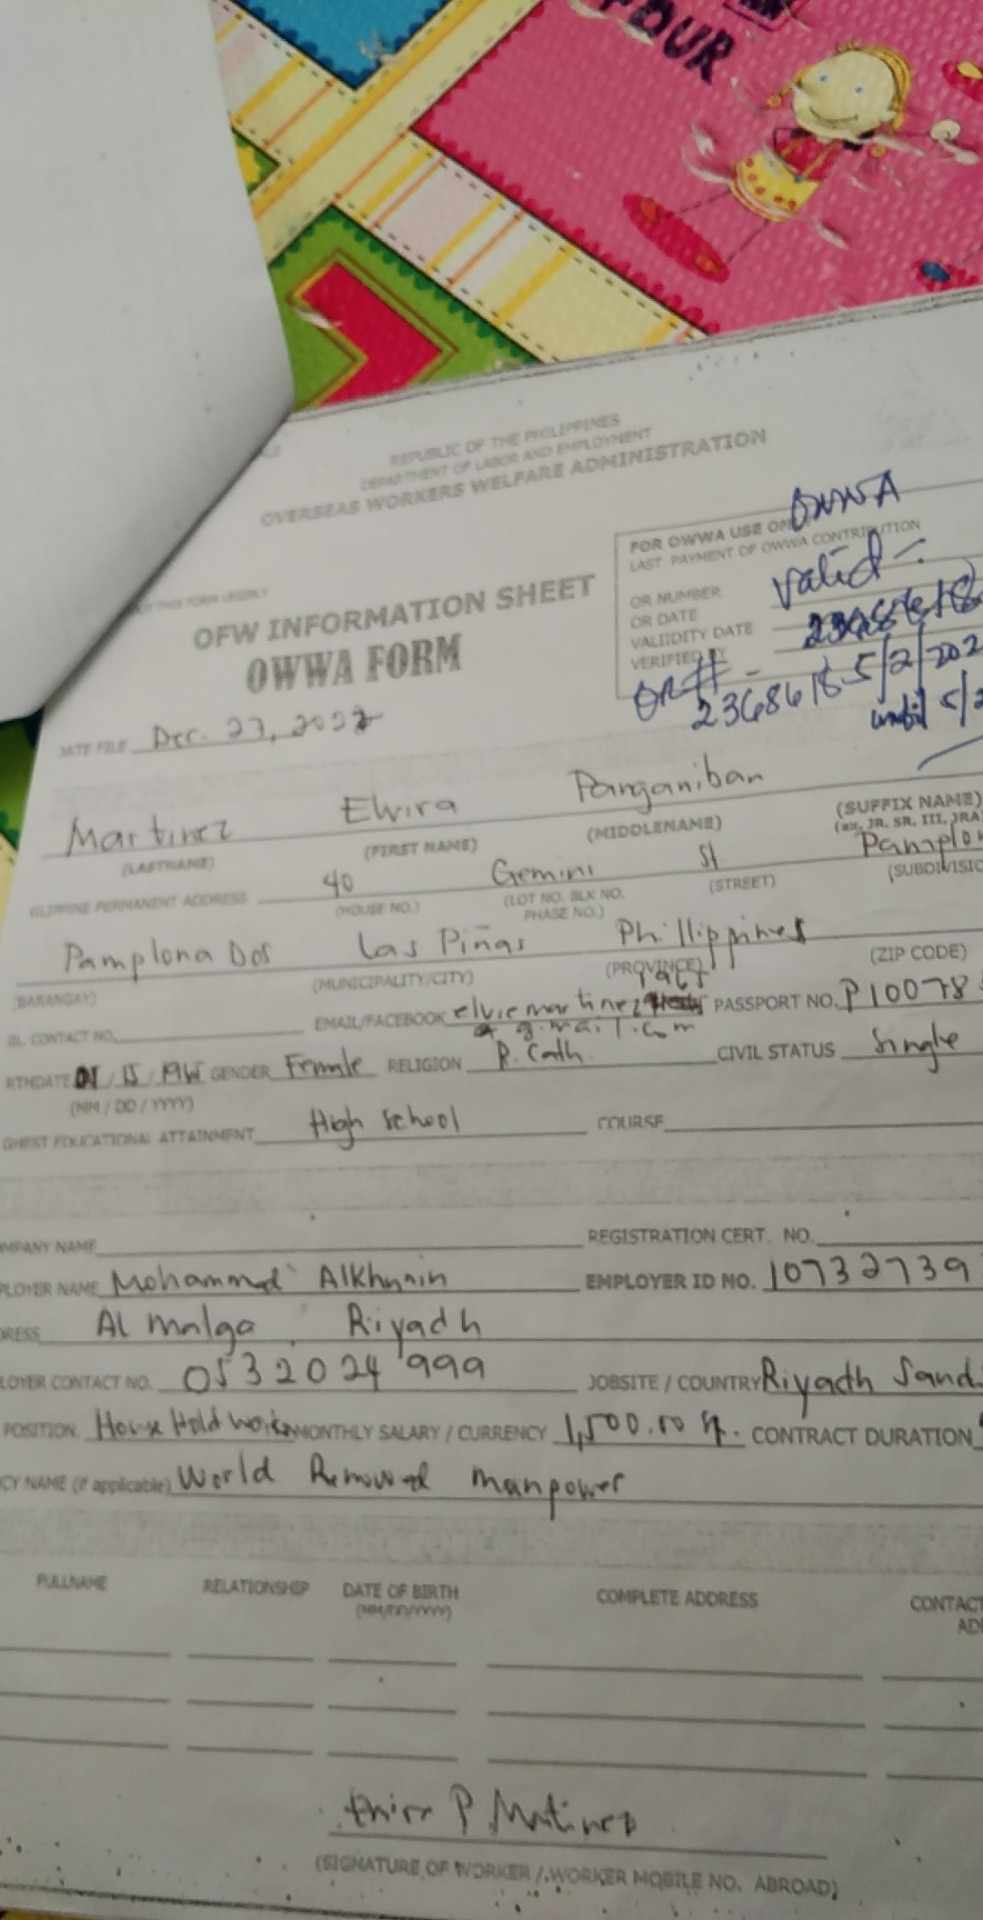 OUR
REPUBLIC OF THE PHILIPPINES
DEPARTMENT OF LABOR AND EMPLOYMENT
OVERSEAS WORKERS WELFARE ADMINISTRATION
THIS FORM LEGIBLY
OFW INFORMATION SHEET
OWWA FORM
FOR OWWA USE ON OWWA
LAST PAYMENT OF OWWA CONTRIBUTION
valid -
OR NUMBER
OR DATE
VALIIDITY DATE
VERIFIED BY
OR# - 2368618 5/2/202
until 5/2
DATE FILE Dec. 27, 2022
Martinez Elvira Panganiban
(LASTNAME) (FIRST NAME) (MIDDLENAME) (SUFFIX NAME)
(ex. JR, SR, III, JRA)
PERMANENT ADDRESS 40 Gemini St Pamplon
(HOUSE NO.) (LOT NO. BLK NO. PHASE NO.) (STREET) (SUBDIVISIO
Pamplona Dos Las Piñas Phillippines
(BARANGAY) (MUNICIPALITY/CITY) (PROVINCE) (ZIP CODE)
CONTACT NO. EMAIL/FACEBOOK elviemartinez PASSPORT NO. P10078
g.mail.com
RTHDATE 15 GENDER Female RELIGION R. Cath. CIVIL STATUS Single
(MM / DD / YYYY)
GHEST EDUCATIONAL ATTAINMENT High School COURSE
OMPANY NAME REGISTRATION CERT. NO.
PLOYER NAME Mohammed EMPLOYER ID NO. 10732739
RESS Al Malga, Riyadh
LOYER CONTACT NO. 0532024999 JOBSITE / COUNTRY Riyadh
POSITION House Hold MONTHLY SALARY / CURRENCY 1,500.00 CONTRACT DURATION
CY NAME (if applicable) World manpower
FULLNAME RELATIONSHIP DATE OF BIRTH COMPLETE ADDRESS CONTACT
(MM/DD/YYYY) AD
P Martinez
(SIGNATURE OF WORKER / WORKER MOBILE NO. ABROAD)